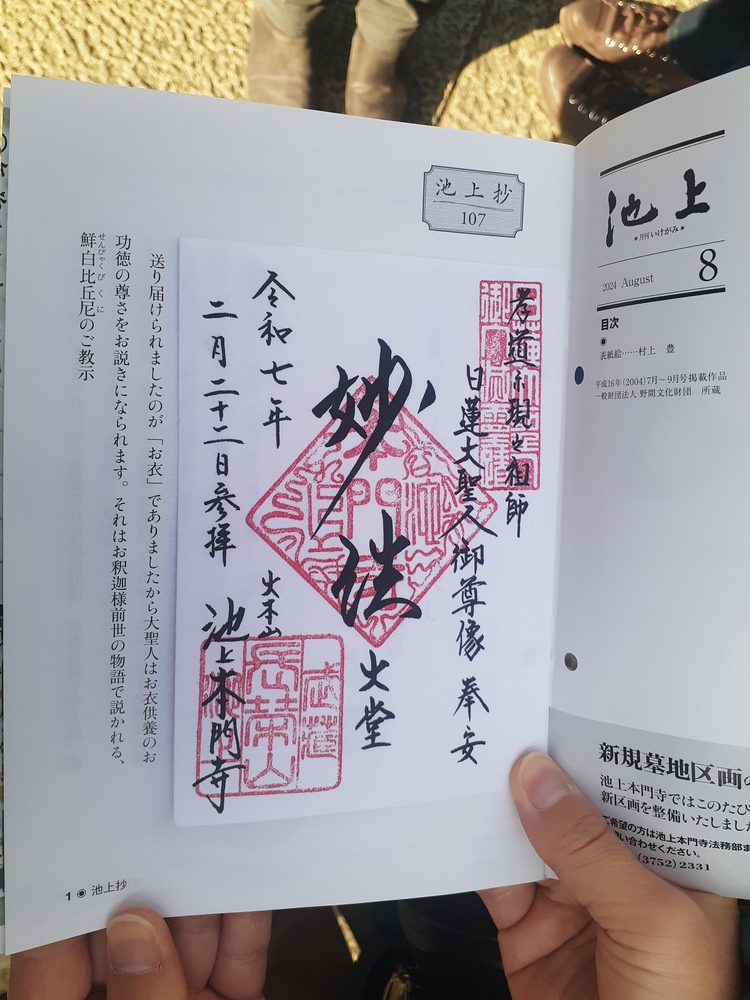 池上
月刊いけがみ
2024 August 8
目次
表紙絵……村上 豊
平成16年(2004)7月〜9月号掲載作品
一般財団法人 野間文化財団 所蔵
新規墓地区画の
池上本門寺ではこのたび
新区画を整備いたしまし
ご希望の方は池上本門寺法務部ま
い合わせください。
(3752)2331
池上抄
107
孝道示現之祖師
日蓮大聖人御尊像 奉安
妙法
大堂
令和七年
二月二十二日参拝
大本山
池上本門寺
送り届けられましたのが「お衣」でありましたから大聖人はお衣供養のお
功徳の尊さをお説きになられます。それはお釈迦様前世の物語で説かれる、
鮮白比丘尼のご教示
せんびゃくびくに
1 ◉ 池上抄